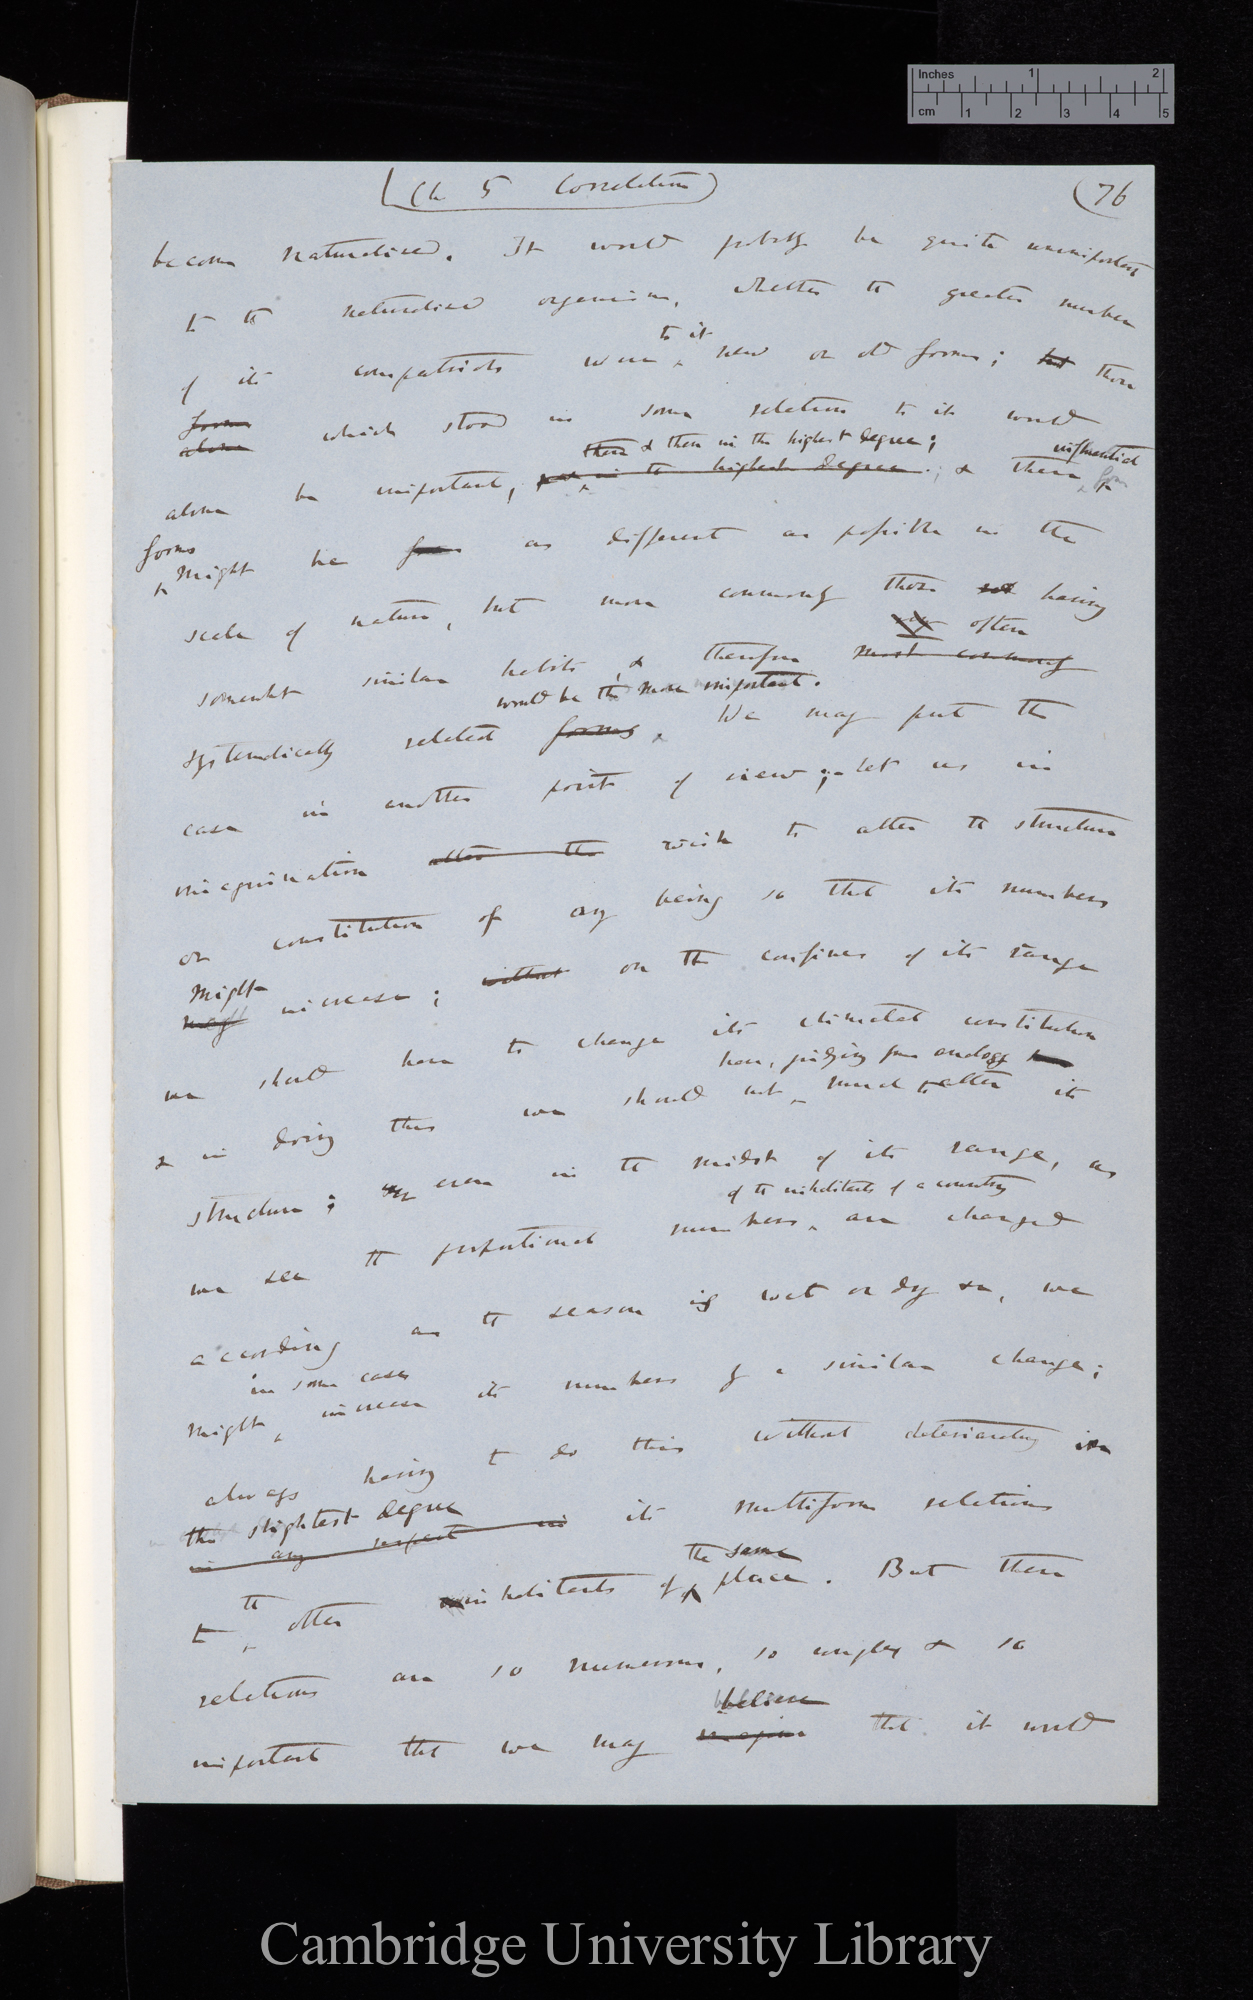 Inches 1 2
cm 1 2 3 4 5
(Ch 5 Correlation) (76
become naturalised. It would probably be quite unimportant
to the naturalised organism, whether the greater number
to it
of its compatriots were new or old forms; but those
forms
alone which stood in some relation to it would
these & then in the highest degree; influential
alone be important, in the highest degree; & these
forms
might be as different as possible in the
scale of nature, but more commonly those not having
often
somewhat similar habits, & therefore most commonly
would be the more important.
systematically related forms. We may put the
case in another point of view; let us in
imagination alter the wish to alter the structure
or constitution of any being so that its numbers
might
may increase; without on the confines of its range
we should have to change its climatal constitution
have, judging from analogy
& in doing this we should not much to alter its
structure; even in the midst of its range, as
of the inhabitants of a country
we see the proportional numbers are changed
according as the season is wet or dry &c, we
in some cases
might increase its numbers by a similar change;
always having to do this without deteriorating in
the slightest degree
in any respect in its multiform relations
the same
to the other inhabitants of place. But these
relations are so numerous, so complex & so
believe
important that we may imagine that it would
Cambridge University Library